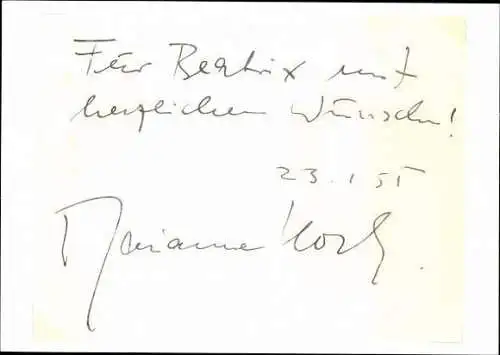 Für Beatrix mit
herzlichen Wünschen!
23.1.55
Marianne Koch.